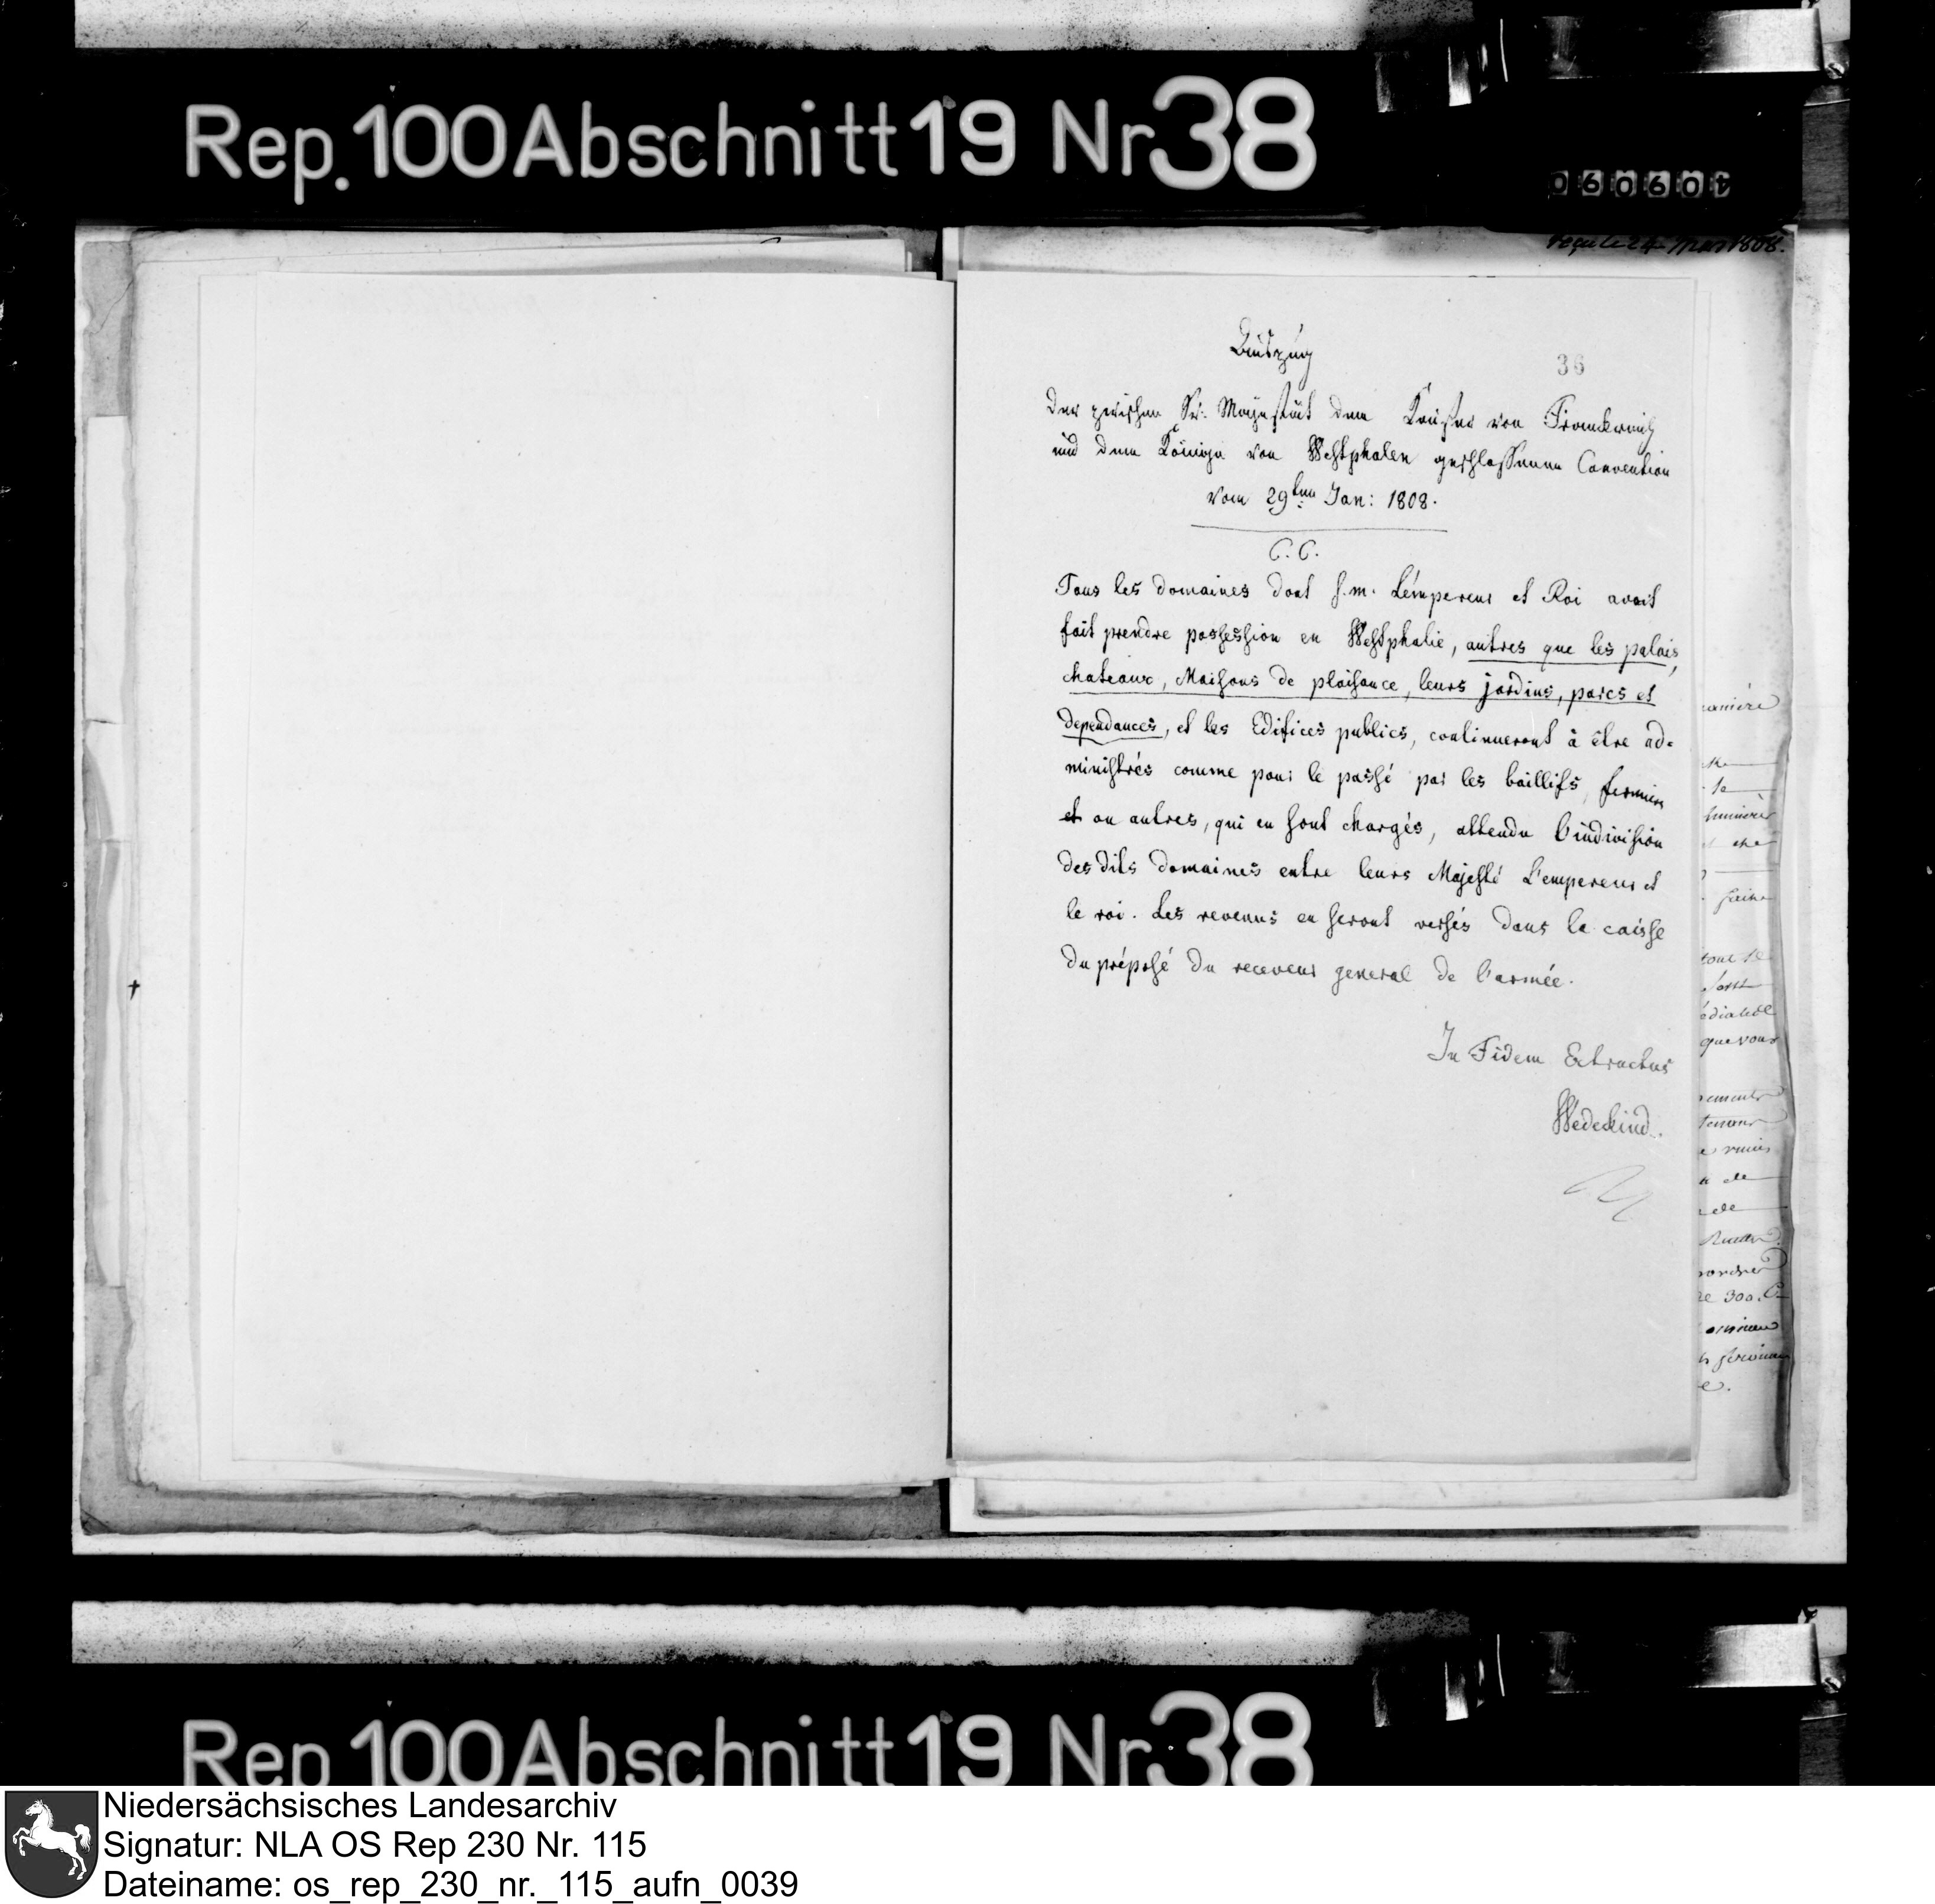 Rep. 100 Abschnitt 19 Nr 38
reçu le 24 Mars 1808.
36
Auszug
der zwischen Sr. Majestät dem Kaiser von Franckreich
und dem Könige von Westphalen geschlossenen Convention
vom 29ten Jan: 1808.
C. C.
Tous les domaines dont S. m. L'empereur et Roi avait
fait prendre possession en Westphalie, autres que les palais,
chateaux, Maisons de plaisance, leurs jardins, parcs et
dependances, et les Edifices publics, continueront à être ad-
ministrés comme pour le passé par les baillifs, fermiers
et ou autres, qui en sont chargés, attendu l'indivision
des dits domaines entre leurs Majesté L'empereur et
le roi. Les revenus en seront versés dans la caisse
du préposé du receveur general de l'armée.
In Fidem Extractus
Wedekind.
Rep 100 Abschnitt 19 Nr. 38
Niedersächsisches Landesarchiv
Signatur: NLA OS Rep 230 Nr. 115
Dateiname: os_rep_230_nr._115_aufn_0039